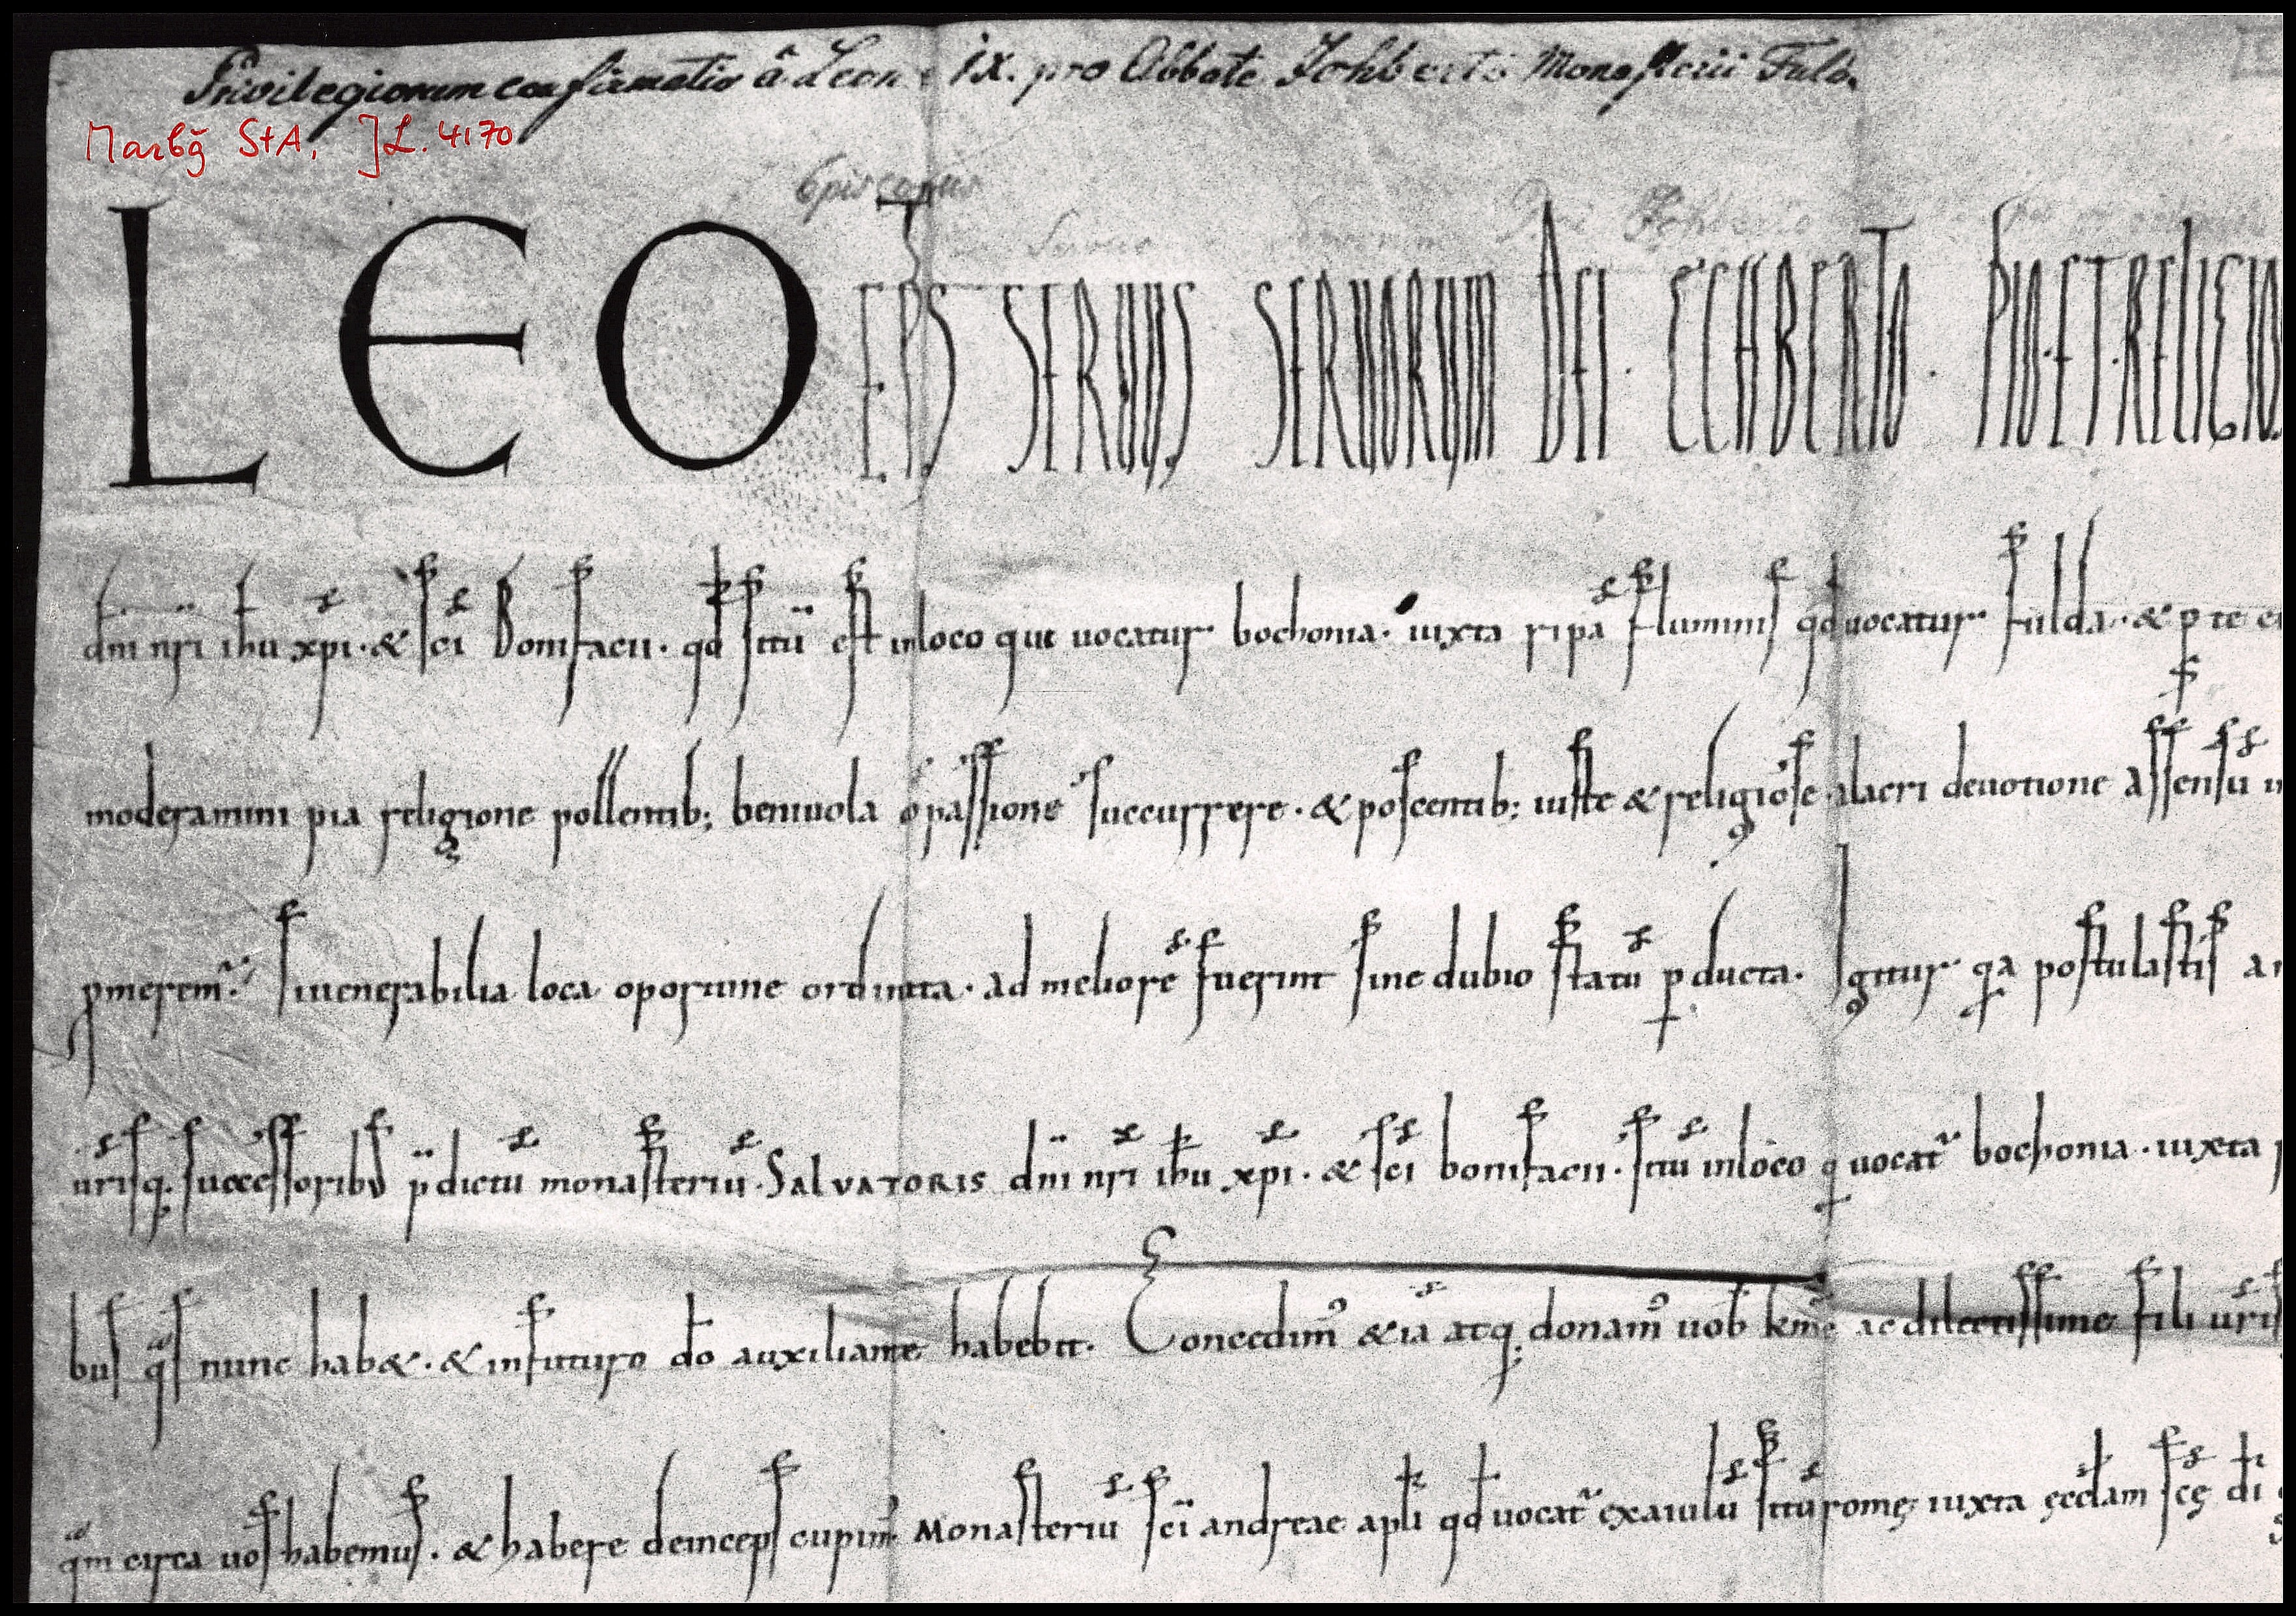 Privilegiorum confirmatio â Leone IX. pro Abbate Echberto Monasterii Fuld.
Marbg StA, JL. 4170
Episcopus Servus Echberto
LEO EPS SERVUS SERVORUM DEI · ECHBERTO · PIO · ET · RELIGIO
dni nri ihu xpi · & sci Bonifacii · qd situ est in loco qui uocatur bochonia · iuxta ripa fluminis qd uocatur fulda · & p te ei
moderamini pia religione pollentib; beniuola cpassione succurrere · & poscentib; iuste & religiose alacri deuotione assensu
pmerem. si uenerabilia loca oportune ordinata · ad meliore fuerint sine dubio statu p ducta. Igitur qa postulastis a
urisq. successoribus p dictu monasteriu · SALVATORIS dni nri ihu xpi · & sci bonifacii · situ in loco q uocat bochonia · iuxta
bus qs nunc hab& · & in futuro do auxiliante habebit. Concedim & ia atq; donam uob kme ac dilectissime fili uris
qm circa uos habemus · & habere deinceps cupim Monasteriu sci andreae apli qd uocat exaiulu situ rome iuxta ecclam sce di